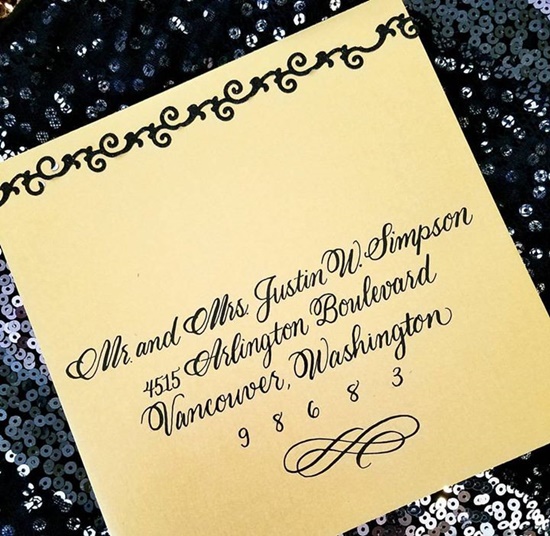 Mr. and Mrs. Justin W. Simpson
4515 Arlington Boulevard
Vancouver, Washington
9 8 6 8 3